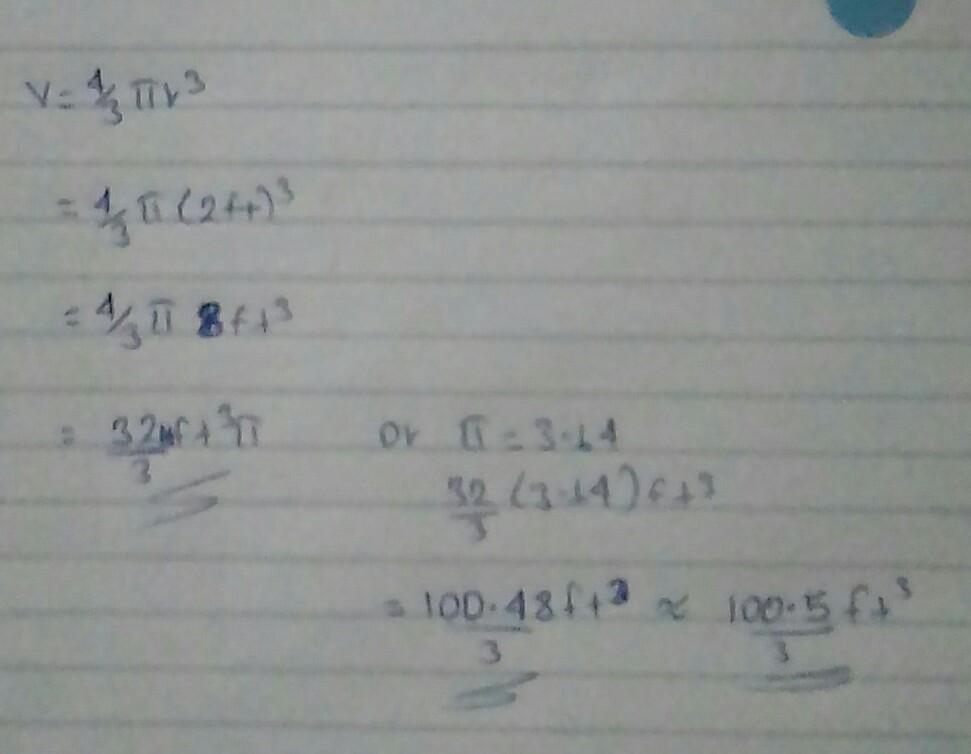 V = 4/3 πr³
= 4/3 π (2ft)³
= 4/3 π 8ft³
= 32ft³π/3 or π = 3.14
32/3 (3.14) ft³
= 100.48ft³/3 ≈ 100.5ft³/3